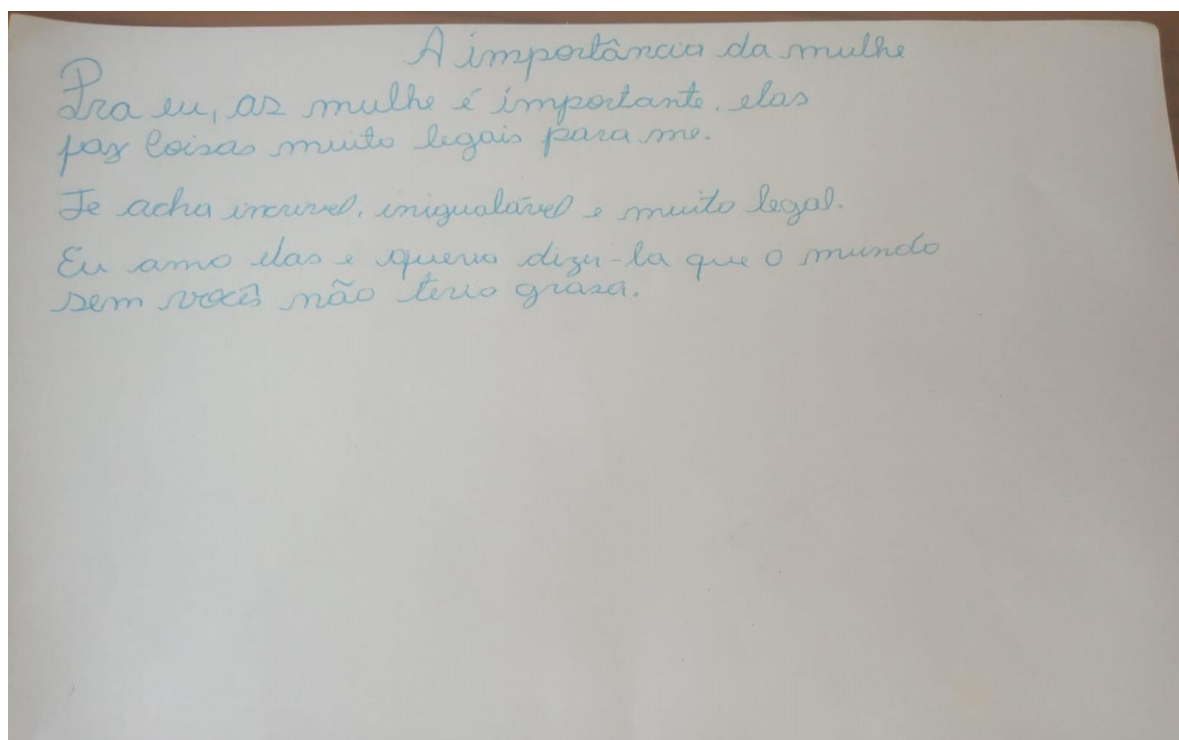 A importância da mulhe
Pra eu, as mulhe é importante. elas
faz Coisas muito legais para me.
Te acha incrivel, inigualável e muito legal.
Eu amo elas e queria dizer-la que o mundo
sem vocês não teria grasa.